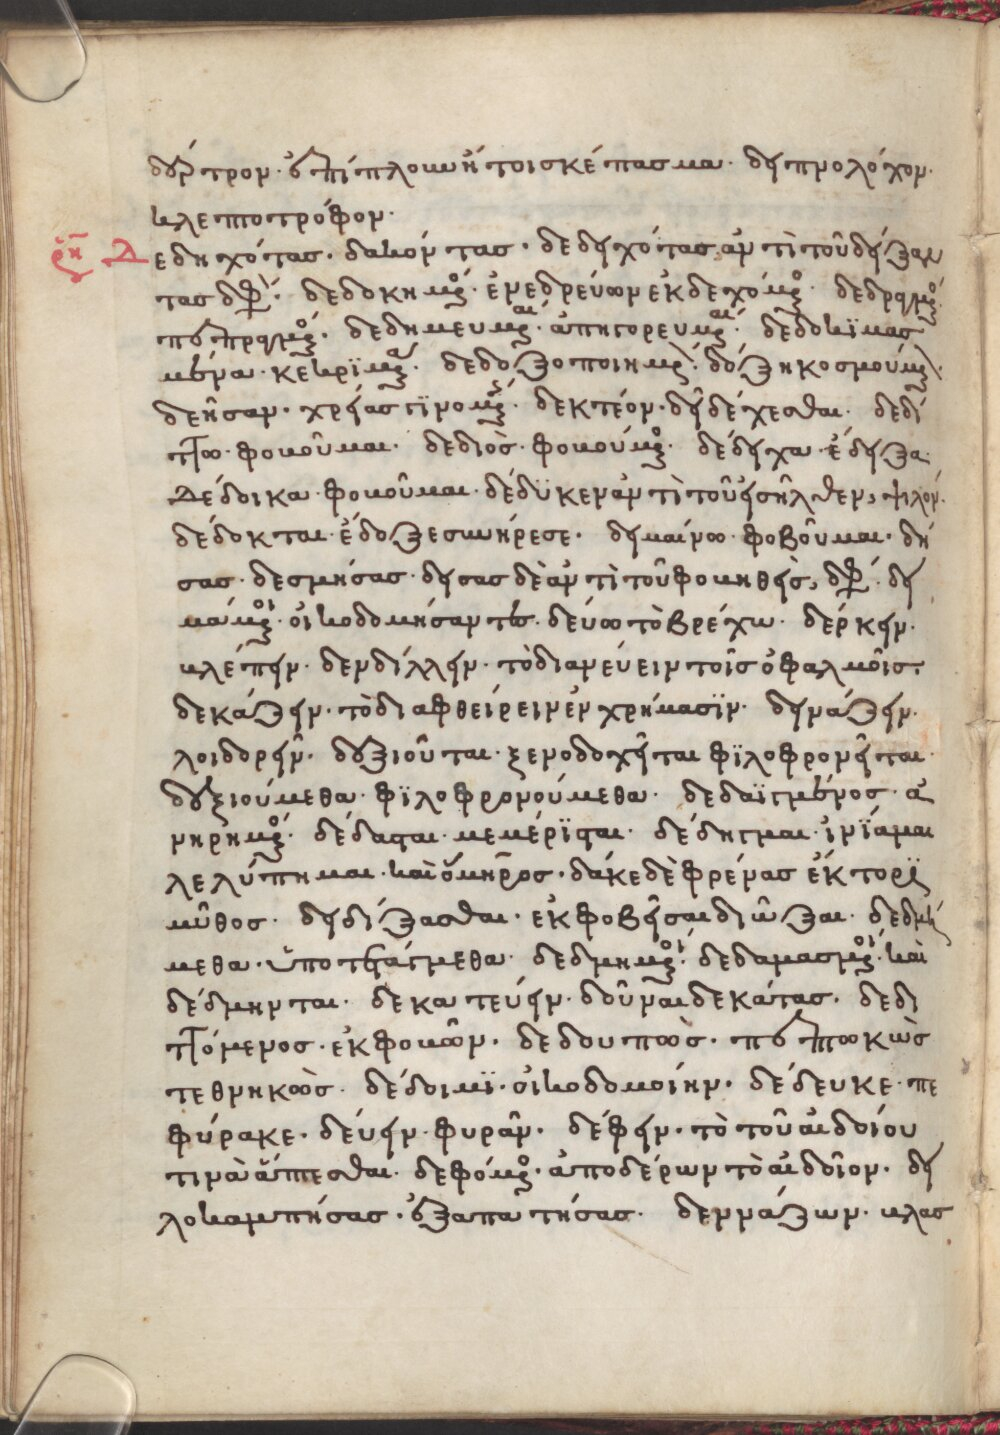 δέρτρον· ἐπίπλουν ἤτοι σκέπασμα· δειπνολόχον·
κλεπτοτρόφον·
ῥῆ Δεδηχότας· δακόντας· δεδειχότας ἀντὶ τοῦ δείξαν
τας δφ· δεδοκημένος· ἐνεδρεύων ἐκδεχόμενος· δεδραγμένος·
πεπραγμένος· δεδημευμέναι· ἀπηγορευμέναι· δεδοκϊμασ
μένα· κεκριμένα· δεδοξοποιημένον· δόξη κοσμούμενον·
δεῆσαν· χρείας γϊνομένης· δεκτέον· δεῖ δέχεσθαι· δεδί
ττω· φοκοῦμαι· δεδιὸς· φοκούμενος· δέδειχα· ἔδειξα·
Δέδοικα· φοκοῦμαι· δέδϋκεν ἀντὶ τοῦ εἰσῆλθεν, ψιλόν·
δέδοκται· ἔδοξε συνήρεσε· δειμαίνω· φοβοῦμαι· δή
σας· δεσμήσας· δείσας δὲ ἀντὶ τοῦ φοκηθεὶς, δφ· δει
μάμενοι· οἰκοδομήσαντες· δεύω τὸ βρέχω· δέρκειν·
κλέπειν· δενδίλλειν· τὸ διανεύειν τοῖς ὀφαλμοῖς·
δεκάζειν· τὸ διαφθείρειν ἐν χρήμασϊν· δεινάζειν·
λοιδορεῖν· δεξιοῦται· ξενοδοχεῖται φϊλοφρονεῖται·
δεξιούμεθα· φϊλοφρονούμεθα· δεδαϊσμένος· ἀ
νηρημένος· δέδασαι· μεμέρϊσαι· δέδησμαι· ἀνϊάμαι
λελύπημαι· καὶ ὅμηρος· δάκε δὲ φρένας ἕκτορϊ
μῦθος· δειδίξασθαι· ἐκφοβεῖσαι διῶξαι· δεδμή
μεθα· ὑποτετάγμεθα· δεδμημένοι· δεδαμασμένοι· καὶ
δέδμηνται· δεκατεύειν· δοῦναι δεκάτας· δεδι
ττόμενος· ἐκφοκῶν· δεδουπὼς· πεπτωκὼς
τεθνηκὼς· δέδοιμϊ· οἰκοδομοίην· δέδευκε· πε
φύρακε· δεύειν· φυρᾶν· δέφειν· τὸ τοῦ αἰδοίου
τινὰ ἅπτεσθαι· δεφόμενος· ἀποδέρων τὸ αἰδοῖον· δει
λοκαμπήσας· ἐξαπατήσας· δεννάζων· κλασ